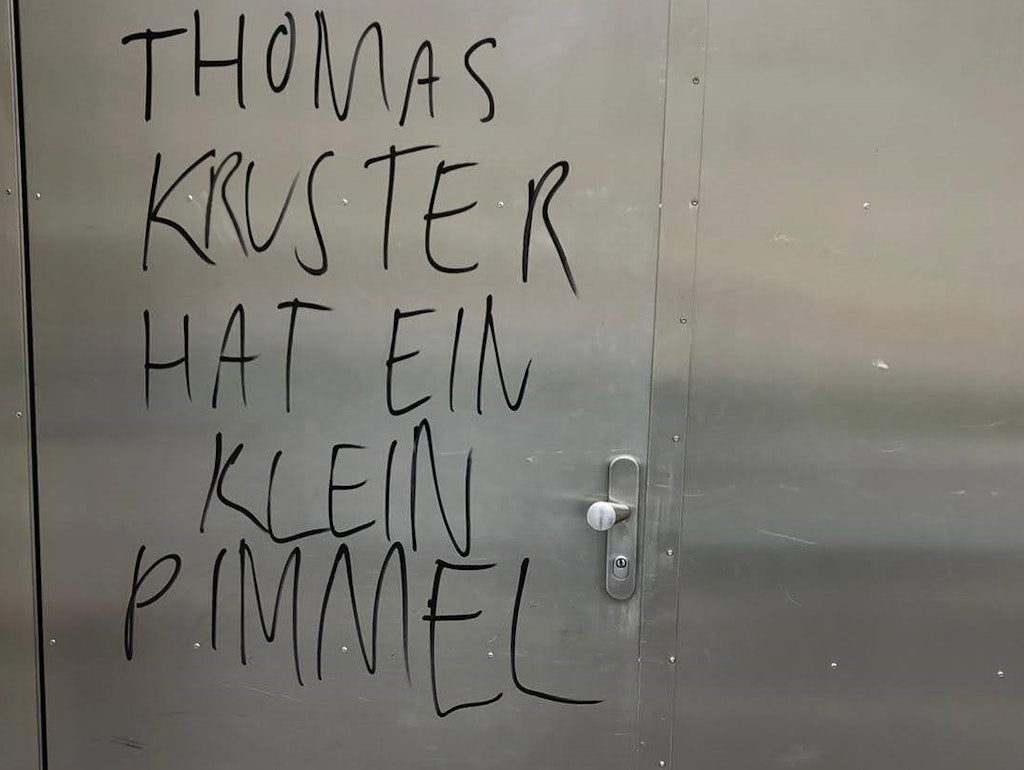 THOMAS
KRUSTER
HAT EIN
KLEIN
PIMMEL